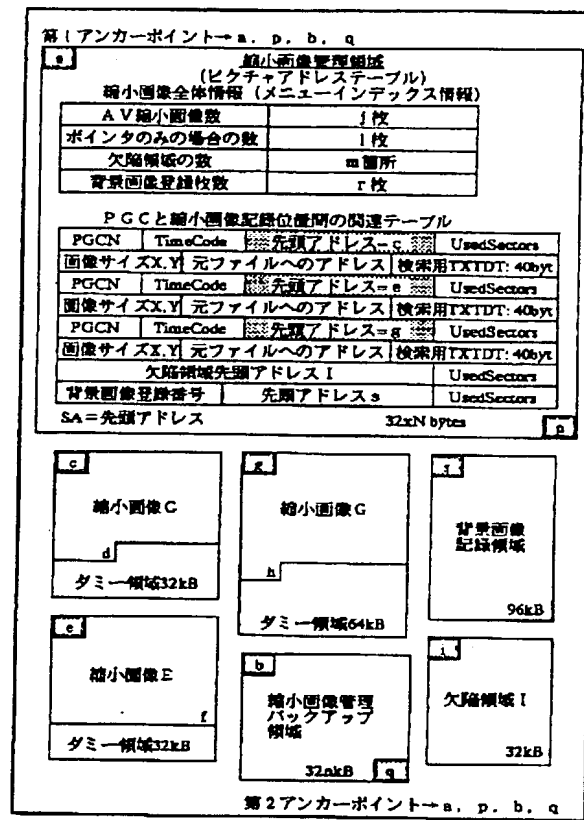 第1アンカーポイント→a, p, b, q
a
縮小画像管理領域
(ピクチャアドレステーブル)
縮小画像全体情報(メニューインデックス情報)
AV縮小画像数 j枚
ポインタのみの場合の数 l枚
欠陥領域の数 m箇所
背景画像登録枚数 r枚
PGCと縮小画像記録位置間の関連テーブル
PGCN TimeCode 先頭アドレス=c UsedSectors
画像サイズX,Y 元ファイルへのアドレス 検索用TXTDT: 40byt
PGCN TimeCode 先頭アドレス=e UsedSectors
画像サイズX,Y 元ファイルへのアドレス 検索用TXTDT: 40byt
PGCN TimeCode 先頭アドレス=g UsedSectors
画像サイズX,Y 元ファイルへのアドレス 検索用TXTDT: 40byt
欠陥領域先頭アドレス I UsedSectors
背景画像登録番号 先頭アドレス s UsedSectors
SA=先頭アドレス 32xN bytes
p
c
縮小画像G
d
ダミー領域32kB
g
縮小画像G
h
ダミー領域64kB
背景画像
記録領域
96kB
e
縮小画像E
f
ダミー領域32kB
b
縮小画像管理
バックアップ
領域
32nkB
q
i
欠陥領域 I
32kB
第2アンカーポイント→a, p, b, q